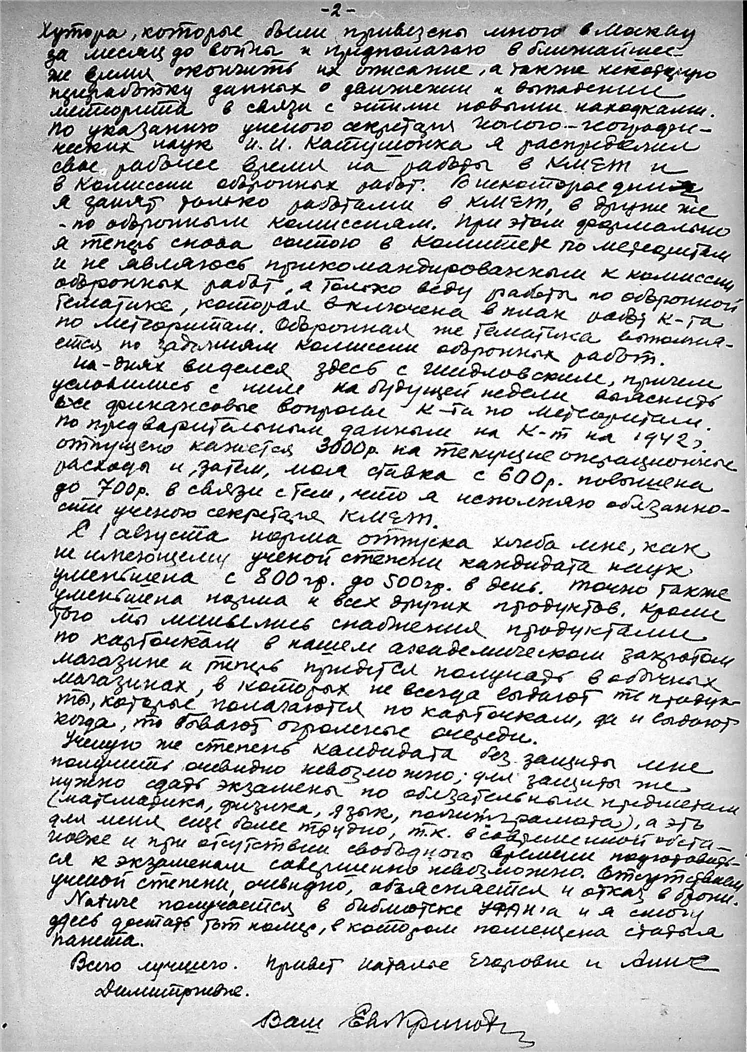 -2-
Хутора, которые были привезены мною в Москву
за месяц до войны и предполагаю в ближайшее-
же время окончить их описание, а также некоторую
переработку данных о движении и выпадении
метеорита в связи с этими новыми находками.
По указанию ученого секретаря геолого-географи-
ческих наук И.И. Катушонка я распределил
свое рабочее время на работы в КМЕТ и
в Комиссии оборонных работ. В некоторые дни
я занят только работами в КМЕТ, в другие же
- по оборонным комиссиям. При этом формально
я теперь снова состою в Комитете по метеоритам
и не являюсь прикомандированным к комиссии
оборонных работ, а только веду работы по оборонной
тематике, которая включена в план работ К-та
по метеоритам. Оборонная же тематика выполня-
ется по заданиям комиссии оборонных работ.
На-днях виделся здесь с Шидловским, причем
условились с ним на будущей неделе выяснить
все финансовые вопросы К-та по метеоритам.
По предварительным данным на К-т на 1942 г.
отпущено кажется 3000р. на текущие операционные
расходы и, затем, моя ставка с 600р. повышена
до 700р. в связи с тем, что я исполняю обязанно-
сти ученого секретаря КМЕТ.
С 1 августа норма отпуска хлеба мне, как
не имеющему ученой степени кандидата наук
уменьшена с 800гр. до 500гр. в день. Точно также
уменьшена норма и всех других продуктов. Кроме
того мы лишились снабжения продуктами
по карточкам в нашем академическом закрытом
магазине и теперь придется получать в обычных
магазинах, в которых не всегда выдают те продук-
ты, которые полагаются по карточкам, да и выдают
когда, то бывают огромные очереди.
Ученую же степень кандидата без защиты мне
получить очевидно невозможно; для защиты же
нужно сдать экзамены по обязательным предметам
(математика, физика, язык, политграмота), а это
для меня еще более трудно, т.к. в современной обста-
новке и при отсутствии свободного времени подготовить-
ся к экзаменам совершенно невозможно. Отсутствием
ученой степени, очевидно, объясняется и отказ в брони.
Nature получается в библиотеке УФАН'а и я смогу
здесь достать тот номер, в котором помещена статья
Панета.
Всего лучшего. Привет Наталье Егоровне и Анне
Димитриевне.
Ваш ЕвлКринов